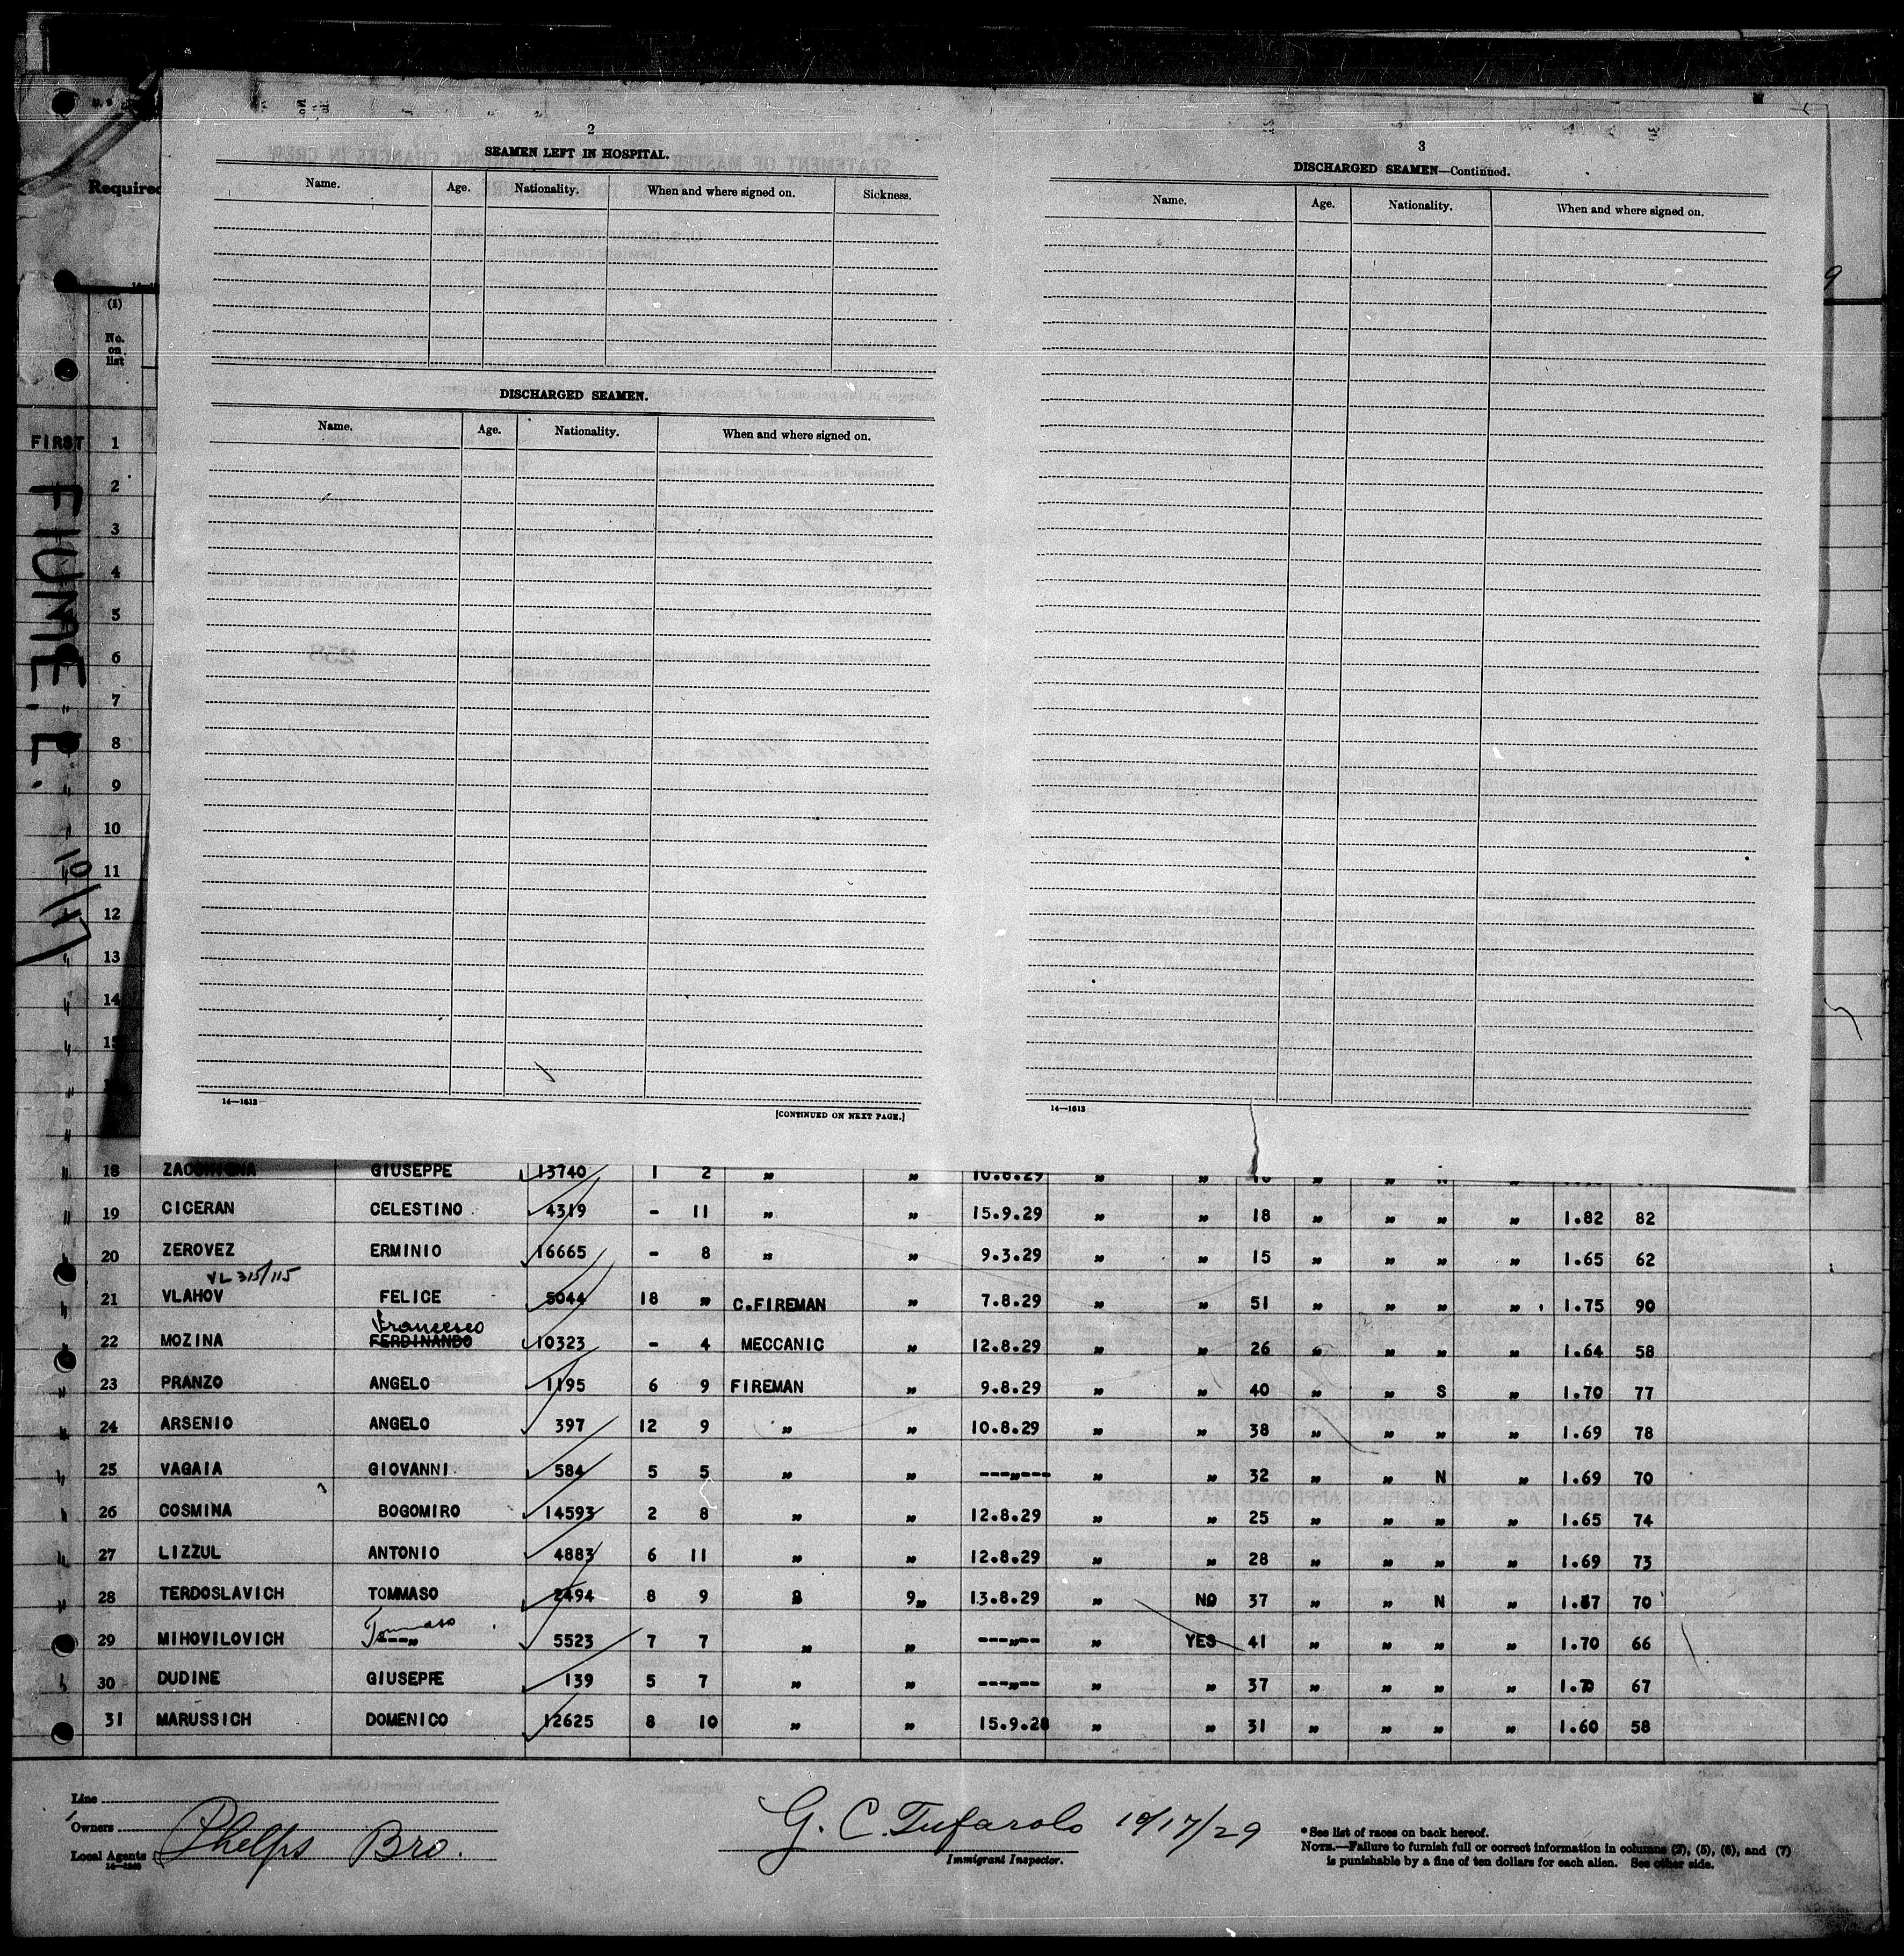 2
SEAMEN LEFT IN HOSPITAL.
Name. Age. Nationality. When and where signed on. Sickness.
DISCHARGED SEAMEN.
Name. Age. Nationality. When and where signed on.
14—1613
[CONTINUED ON NEXT PAGE.]
3
DISCHARGED SEAMEN—Continued.
Name. Age. Nationality. When and where signed on.
14—1613
Required
(1)
No. on list
FIRST
FIUME. L. 10/17
1
2
3
4
5
6
7
8
9
10
11
12
13
14
15
18 GIUSEPPE 13740 1 2 " " 10.8.29 " "
19 CICERAN CELESTINO 4319 - 11 " " 15.9.29 " " 18 " " " " 1.82 82
20 ZEROVEZ ERMINIO 16665 - 8 " " 9.3.29 " " 15 " " " " 1.65 62
VL 315/115
21 VLAHOV FELICE 5044 18 " C.FIREMAN " 7.8.29 " " 51 " " " " 1.75 90
Francesco
22 MOZINA FERDINANDO 10323 - 4 MECCANIC " 12.8.29 " " 26 " " " " 1.64 58
23 PRANZO ANGELO 1195 6 9 FIREMAN " 9.8.29 " " 40 " " S " 1.70 77
24 ARSENIO ANGELO 397 12 9 " " 10.8.29 " " 38 " " " " 1.69 78
25 VAGAIA GIOVANNI. 584 5 5 " " ---"--- " " 32 " " N " 1.69 70
26 COSMINA BOGOMIRO 14593 2 8 " " 12.8.29 " " 25 " " " " 1.65 74
27 LIZZUL ANTONIO 4883 6 11 " " 12.8.29 " " 28 " " " " 1.69 73
28 TERDOSLAVICH TOMMASO 2494 8 9 " 9" 13.8.29 " NO 37 " " N " 70
Tommaso
29 MIHOVILOVICH ---" 5523 7 7 " " ---"--- " YES 41 " " " " 1.70 66
30 DUDINE GIUSEPPE 139 5 7 " " ---"--- " " 37 " " " " 1.70 67
31 MARUSSICH DOMENICO 12625 8 10 " " 15.9.28 " " 31 " " " " 1.60 58
Line
Owners
Local Agents Phelps Bro.
G. C. Tufarolo 10/17/29
Immigrant Inspector.
* See list of races on back hereof.
NOTE.—Failure to furnish full or correct information in columns (3), (5), (6), and (7)
is punishable by a fine of ten dollars for each alien. See other side.